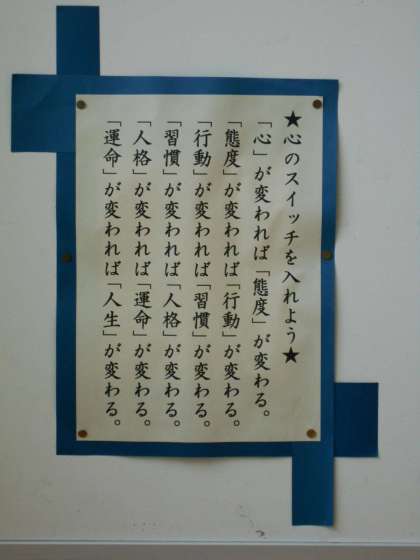 ★心のスイッチを入れよう★
「心」が変われば「態度」が変わる。
「態度」が変われば「行動」が変わる。
「行動」が変われば「習慣」が変わる。
「習慣」が変われば「人格」が変わる。
「人格」が変われば「運命」が変わる。
「運命」が変われば「人生」が変わる。